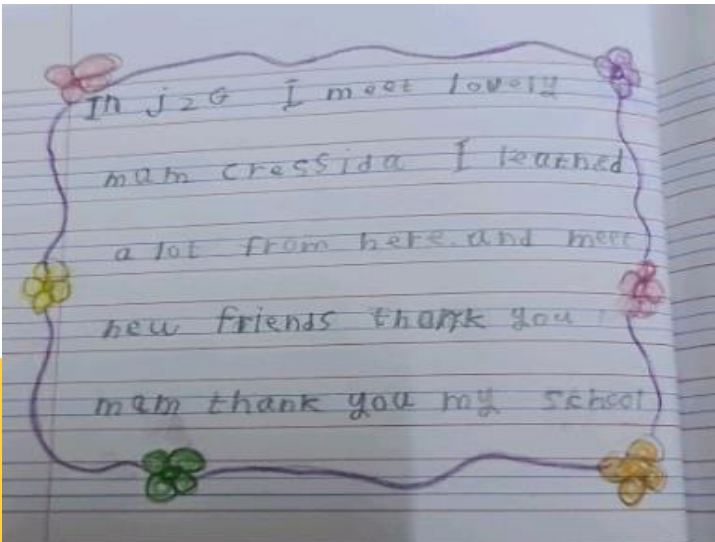 In j2G I meet lovely
mam cressida I learned
a lot from here and meet
new friends thank you
mam thank you my school